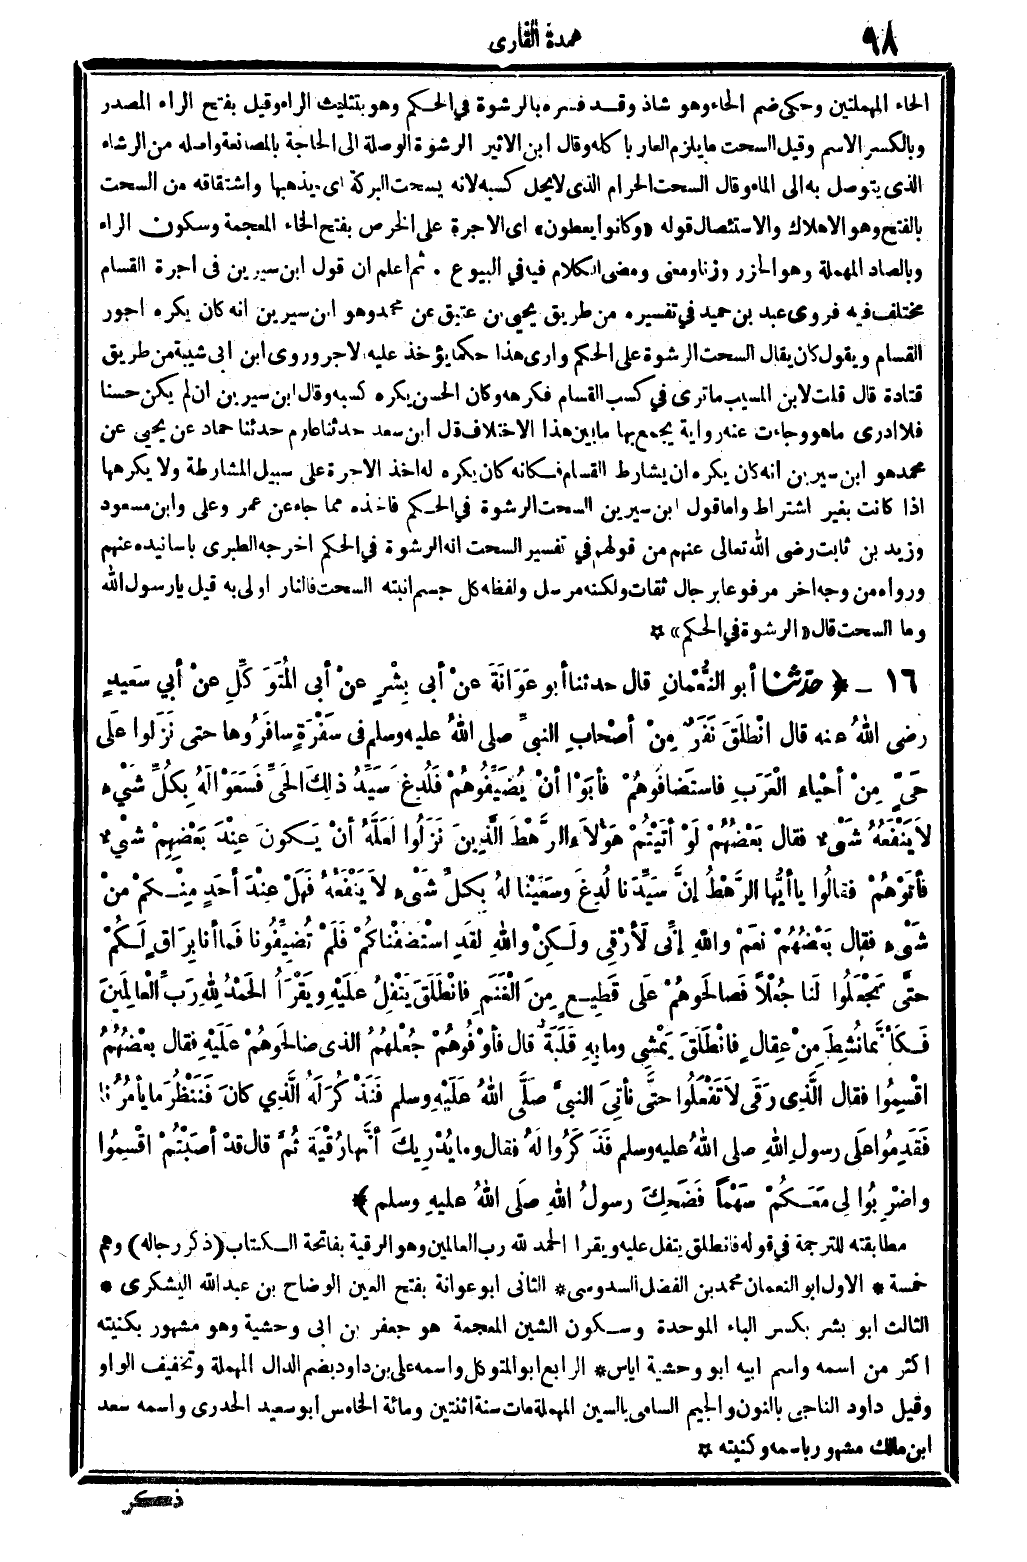 ٩٨
عمدة القارى
الحاء المهملتين وحكى ضم الحاء وهو شاذ وقد فسره بالرشوة في الحكم وهو بتثليث الراء وقيل بفتح الراء المصدر
وبالكسر الاسم وقيل السحت ما يلزم العار باكله وقال ابن الاثير الرشوة الوصلة الى الحاجة بالمصانعة واصله من الرشاء
الذى يتوصل به الى الماء وقال السحت الحرام الذى لا يحل كسبه لانه يسحت البركة اى يذهبها واشتقاقه من السحت
بالفتح وهو الاهلاك والاستئصال قوله «وكانوا يعطون» اى الاجرة على الخرص بفتح الخاء المعجمة وسكون الراء
وبالصاد المهملة وهو الحزر وزنا ومعنى ومضى الكلام فيه في البيوع . ثم اعلم ان قول ابن سيرين فى اجرة القسام
مختلف فيه فروى عبد بن حميد في تفسيره من طريق يحيى بن عتيق عن محمد وهو ابن سيرين انه كان يكره اجور
القسام ويقول كان يقال السحت الرشوة على الحكم وارى هذا حكما يؤخذ عليه الاجر وروى ابن ابى شيبة من طريق
قتادة قال قلت لابن المسيب ما ترى في كسب القسام فكرهه وكان الحسن يكره كسبه وقال ابن سيرين ان لم يكن حسنا
فلا ادرى ما هو وجاءت عنه رواية يجمع بها ما بين هذا الاختلاف قال ابن سعد حدثنا عارم حدثنا حماد عن يحيى عن
محمد هو ابن سيرين انه كان يكره ان يشارط القسام فكانه كان يكره له اخذ الاجرة على سبيل المشارطة ولا يكرهها
اذا كانت بغير اشتراط واما قول ابن سيرين السحت الرشوة في الحكم فاخذه مما جاء عن عمر وعلى وابن مسعود
وزيد بن ثابت رضى الله تعالى عنهم من قولهم في تفسير السحت انه الرشوة في الحكم اخرجه الطبرى باسانيده عنهم
ورواه من وجه اخر مرفوعا برجال ثقات ولكنه مرسل ولفظه كل جسم انبته السحت فالنار اولى به قيل يا رسول الله
وما السحت قال «الرشوة في الحكم» ✡
١٦ ـ ﴿ حَدَّثَنَا أبو النُّعْمانِ قال حدثنا أبو عَوَانَةَ عنْ أبى بِشْرٍ عنْ أبى المُتَوَكِّلِ عنْ أبي سَعيدٍ
رضى اللهُ عنه قال انْطَلَقَ نَفَرٌ مِنْ أصْحابِ النبيِّ صلى اللهُ عليه وسلم فى سَفْرَةٍ سافَرُوها حتى نَزَلوا علَى
حَيٍّ مِنْ أحْياءِ الْعَرَبِ فاستَضافُوهُمْ فأبَوْا أنْ يُضَيِّفُوهُمْ فَلُدِغَ سَيِّدُ ذالِكَ الحَيِّ فَسَعَوْا لَهُ بِكُلِّ شَيْءٍ
لاَ يَنْفَعُهُ شَيْءٌ فقال بَعْضُهُمْ لَوْ أتَيْتُمْ هَؤُلاَءِ الرَّهْطَ الَّذِينَ نَزَلُوا لَعَلَّهُ أنْ يَكونَ عِنْدَ بَعْضِهِمْ شَيْءٌ
فأتَوْهُمْ فقالُوا يا أيُّها الرَّهْطُ إنَّ سَيِّدَنا لُدِغَ وسَعَيْنا لهُ بِكلِّ شَيْءٍ لاَ يَنْفَعُهُ فَهَلْ عِنْدَ أحَدٍ مِنْكمْ مِنْ
شَيْءٍ فقال بَعْضُهُمْ نعَمْ واللهِ إنِّي لأَرْقِي ولَكِنْ واللهِ لقَدِ اسْتَضَفْناكُمْ فَلَمْ تُضيِّفُونا فَما أنا بِرَاقٍ لَكُمْ
حتَّى تَجْعَلُوا لَنا جُعْلاً فَصالَحوهُمْ على قَطِيعٍ مِنَ الْغَنَمِ فانْطَلَقَ يَتفِلُ عَلَيْهِ ويَقْرَأُ الحَمْدُ لِلهِ رَبِّ العالَمِينَ
فَكأَنَّما نُشِطَ مِنْ عِقالٍ فانْطَلَقَ يَمْشِي وما بِهِ قَلَبَةٌ قال فأوْفُوهُمْ جُعْلَهُمُ الذى صالَحوهُمْ عَلَيْهِ فقال بعْضُهُمُ
اقْسِمُوا فقال الَّذِى رَقَى لاَ تَفْعَلُوا حتَّى نأتِيَ النبيَّ صَلَّى اللهُ عَلَيْهِ وسلم فَنَذْكُرَ لَهُ الَّذِي كانَ فَنَنْظُرَ ما يأمُرُنا
فَقَدِمُوا علَى رسولِ اللهِ صلى اللهُ عليه وسلم فَذَكَرُوا لَهُ فقال وما يُدْرِيكَ أنَّها رُقْيَةٌ ثُمَّ قال قدْ أصَبْتُمْ اقْسِمُوا
واضْرِبُوا لِى مَعَكُمْ سَهْمًا فَضَحِكَ رسولُ اللهِ صلى اللهُ عليهِ وسلم ﴾
مطابقته للترجمة في قوله فانطلق يتفل عليه ويقرا الحمد لله رب العالمين وهو الرقية بفاتحة الكتاب (ذكر رجاله) وهم
خمسة * الاول ابو النعمان محمد بن الفضل السدوسى * الثانى ابو عوانة بفتح العين الوضاح بن عبد الله اليشكرى *
الثالث ابو بشر بكسر الباء الموحدة وسكون الشين المعجمة هو جعفر بن ابى وحشية وهو مشهور بكنيته
اكثر من اسمه واسم ابيه ابو وحشية اياس * الرابع ابو المتوكل واسمه على بن داود بضم الدال المهملة وتخفيف الواو
وقيل داود الناجى بالنون والجيم السامى بالسين المهملة مات سنة اثنتين ومائة الخامس ابو سعيد الخدرى واسمه سعد
ابن مالك مشهور باسمه وكنيته ✡
ذكر